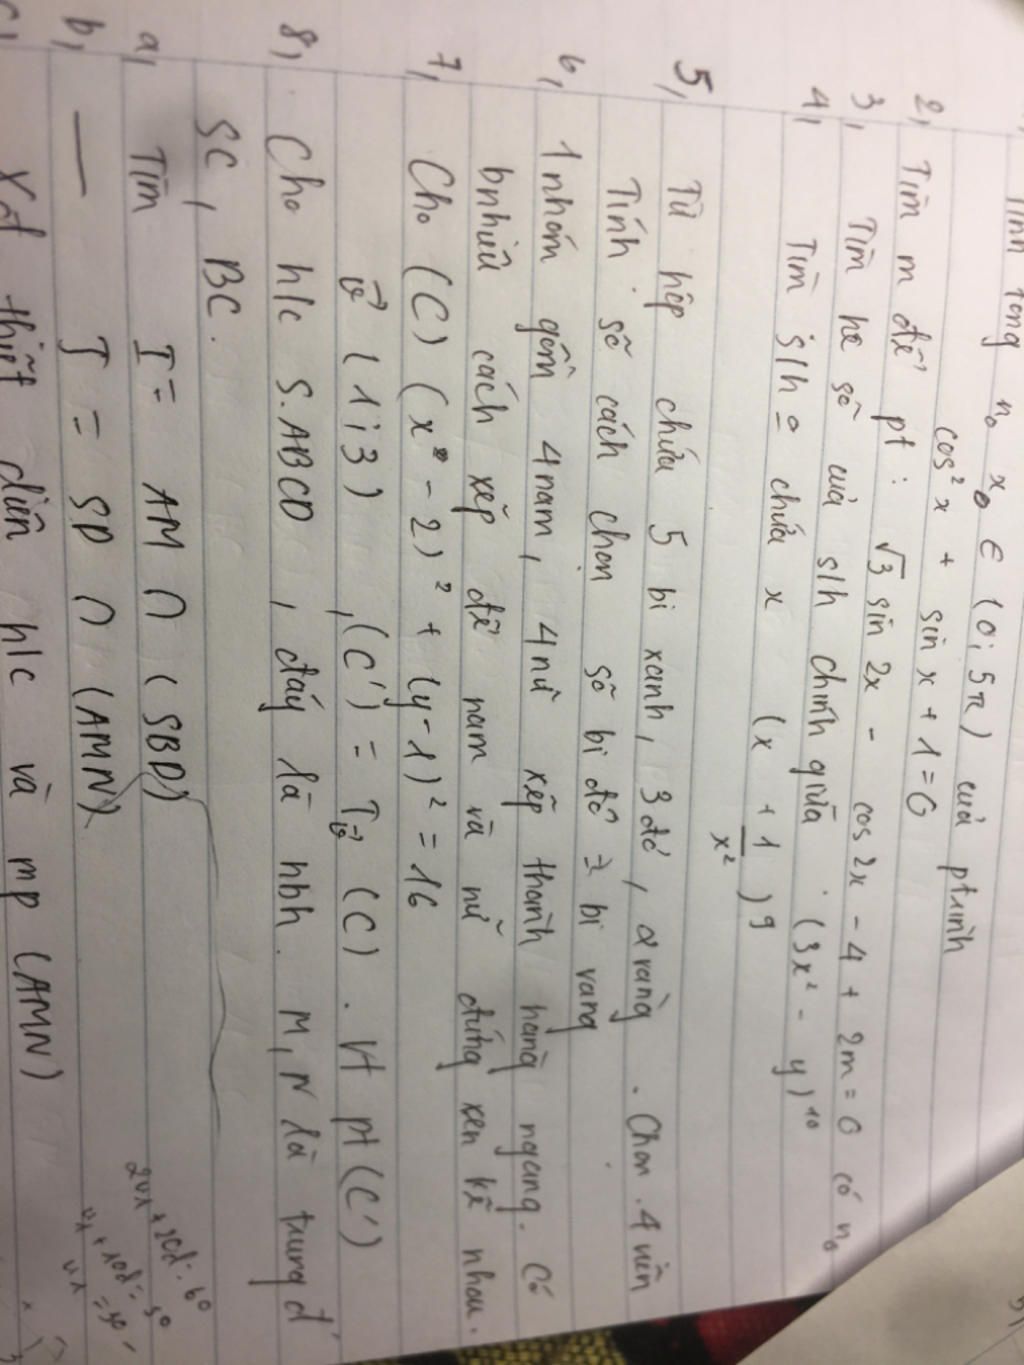 Tính tổng n₀ x₀ ∈ (0; 5π) của ptrình
cos²x + sin x + 1 = 0
2, Tìm m để pt: √3 sin 2x - cos 2x - 4 + 2m = 0 có n₀
3, Tìm hệ số của s/h chính giữa (3x² - y)¹⁰
4, Tìm s/h chứa x (x + 1/x²)⁹
5, Từ hộp chứa 5 bi xanh, 3 đỏ, 2 vàng. Chọn 4 viên
Tính số cách chọn số bi đỏ = bi vang
6, 1 nhóm gồm 4 nam, 4 nữ xếp thành hàng ngang. Có
bnhiêu cách xếp để nam và nữ đứng xen kẽ nhau.
7, Cho (C) (x - 2)² + (y - 1)² = 16
v⃗ (1; 3), (C') = T v⃗ (C). Vt pt (C')
8, Cho h/c S.ABCD, đáy là hbh. M, N là trung đ'
SC, BC.
a, Tìm I = AM ∩ (SBD)
b, — J = SD ∩ (AMN)
c, Xđ thiết diện h/c và mp (AMN)
2u₁ + 20d = 60
u₁ + 10d = 30